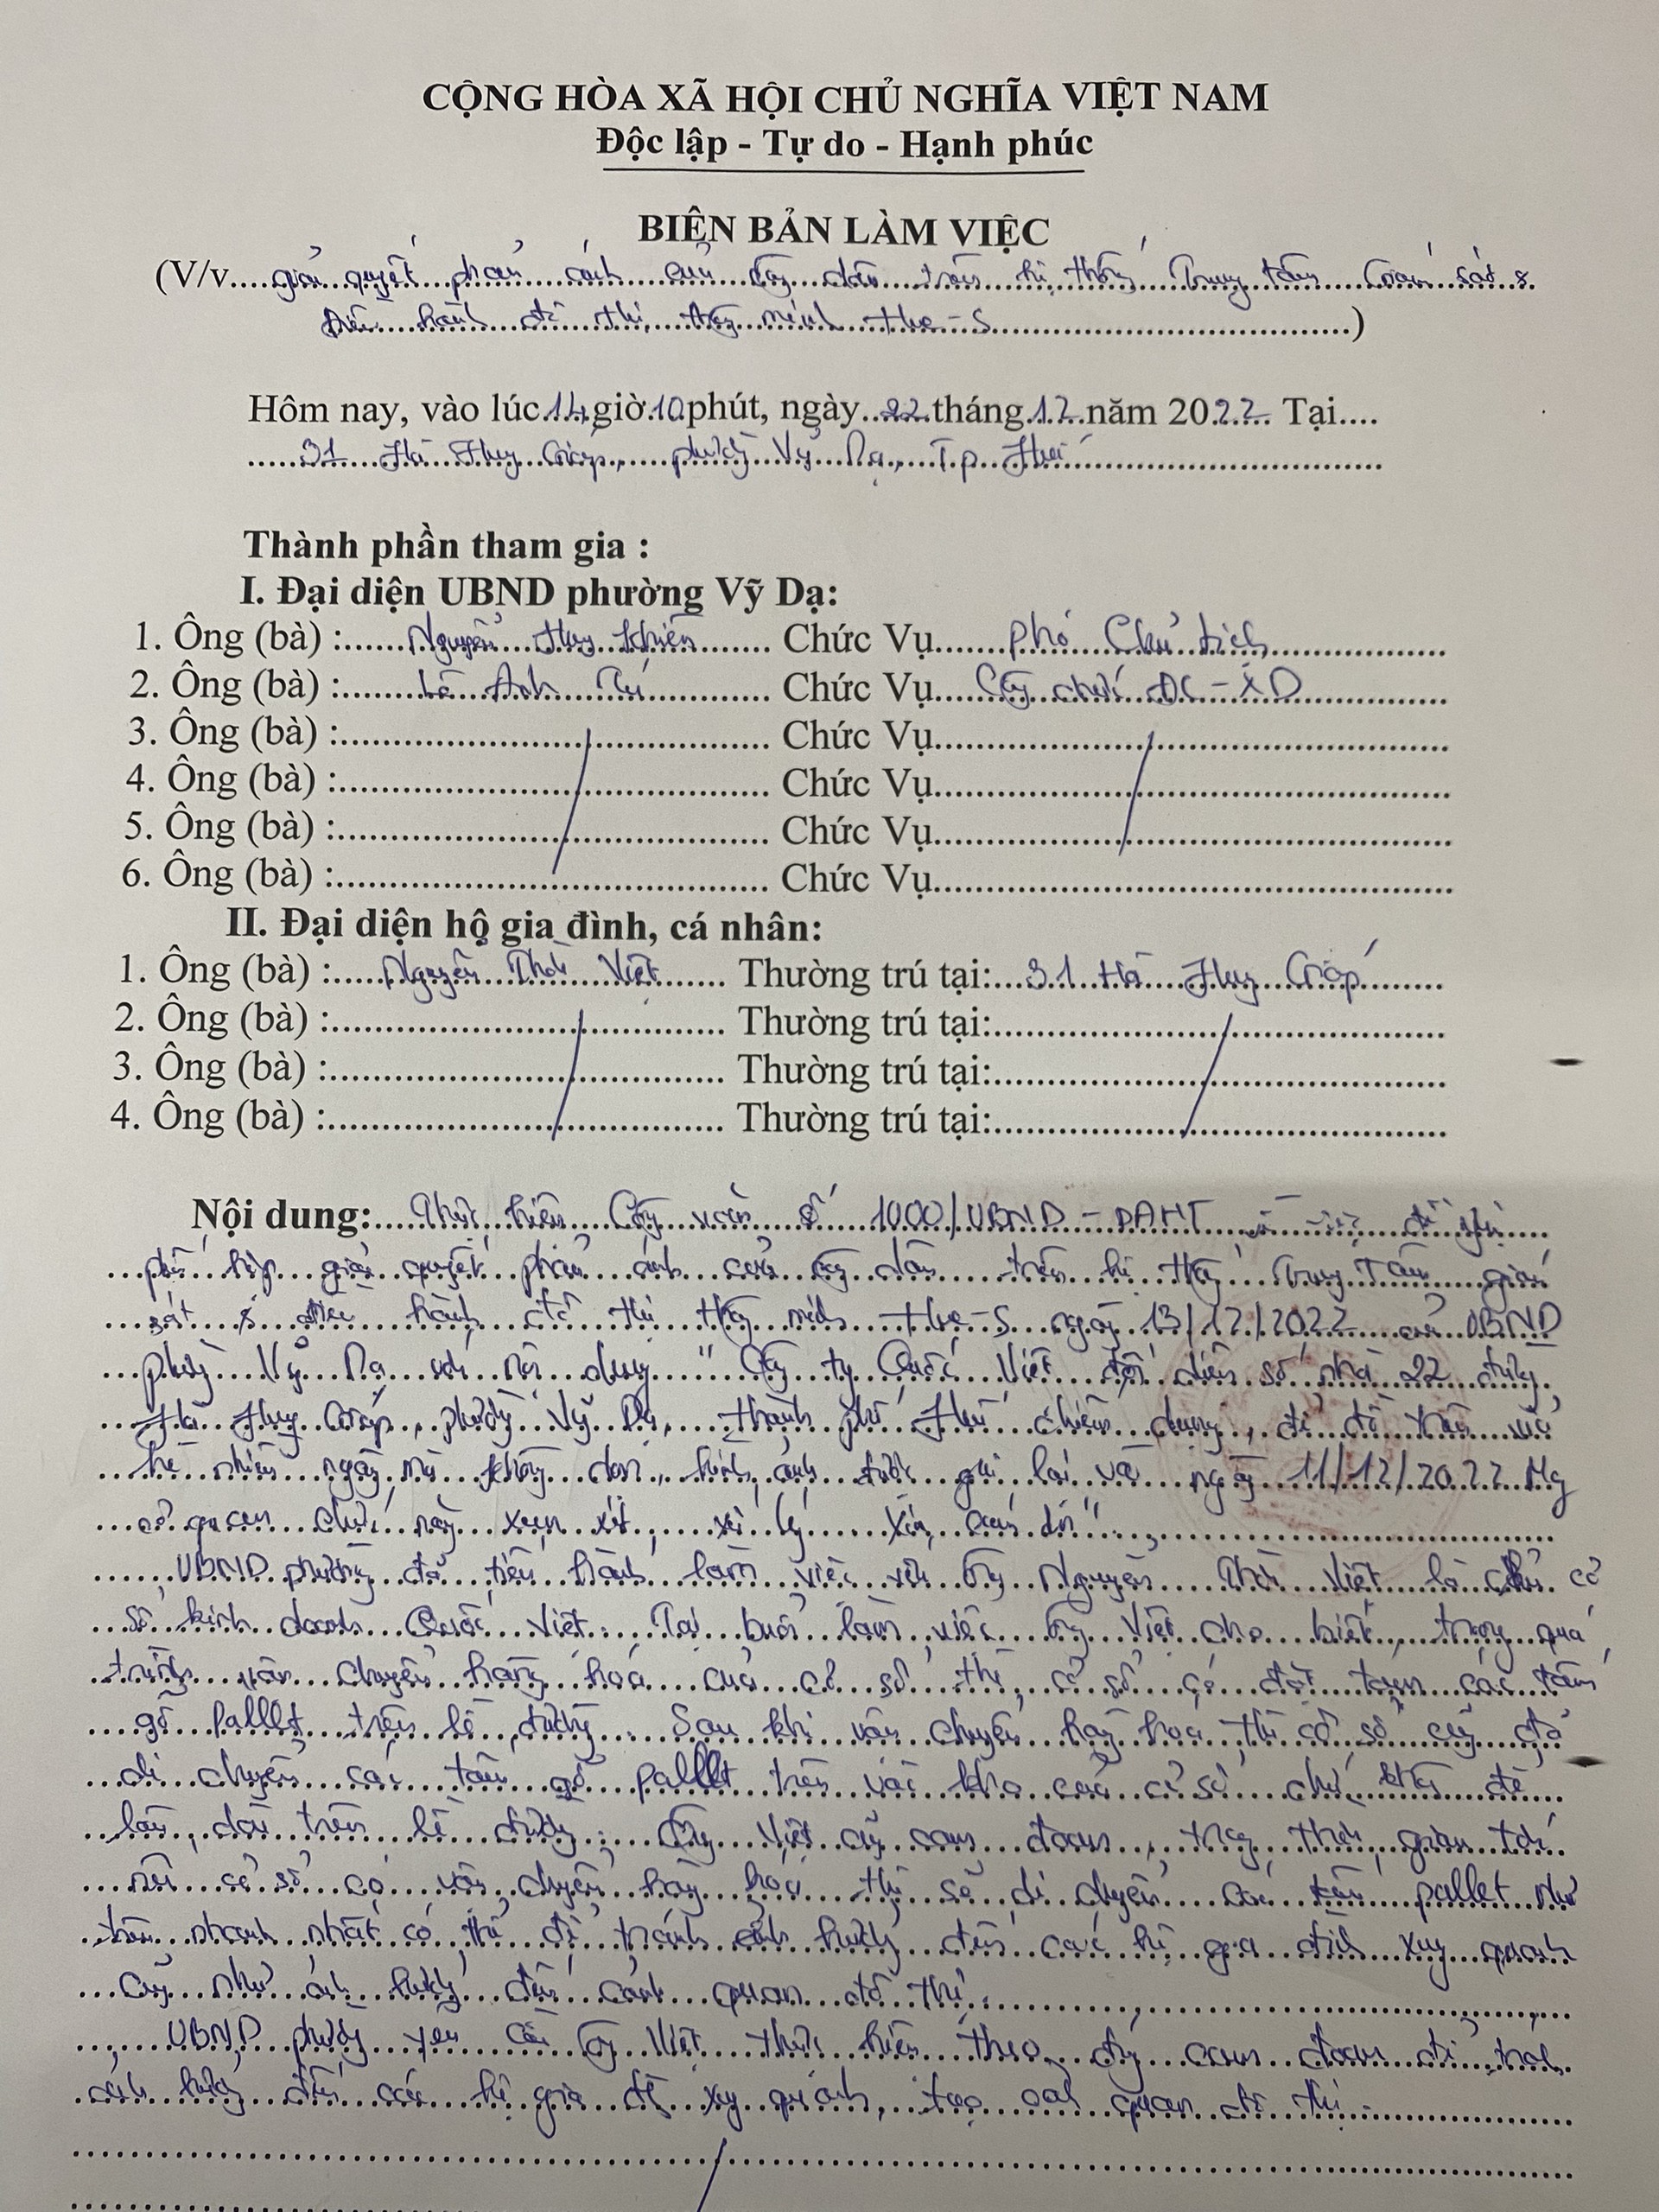 CỘNG HÒA XÃ HỘI CHỦ NGHĨA VIỆT NAM
Độc lập - Tự do - Hạnh phúc
BIÊN BẢN LÀM VIỆC
(V/v....giải quyết phản ánh của công dân trên hệ thống Trung tâm Giám sát &
điều hành đô thị thông minh Hue-S....)
Hôm nay, vào lúc 14 giờ 10 phút, ngày 22 tháng 12 năm 2022 Tại....
31 Hà Huy Giáp, phường Vỹ Dạ, T.p Huế
Thành phần tham gia :
I. Đại diện UBND phường Vỹ Dạ:
1. Ông (bà) : Nguyễn Huy Khiển Chức Vụ Phó Chủ tịch
2. Ông (bà) : Lê Anh Tú Chức Vụ Công chức ĐC-XD
3. Ông (bà) : Chức Vụ
4. Ông (bà) : Chức Vụ
5. Ông (bà) : Chức Vụ
6. Ông (bà) : Chức Vụ
II. Đại diện hộ gia đình, cá nhân:
1. Ông (bà) : Nguyễn Việt Thường trú tại: 31 Hà Huy Giáp
2. Ông (bà) : Thường trú tại:
3. Ông (bà) : Thường trú tại:
4. Ông (bà) : Thường trú tại:
Nội dung: Thực hiện Công văn số 1000/UBND-ĐAHT đề nghị
phối hợp giải quyết phản ánh của công dân trên hệ thống Trung Tâm giám
sát & điều hành đô thị thông minh Hue-S ngày 13/12/2022 của UBND
phường Vỹ Dạ với nội dung "Công ty Quốc Việt đối diện số nhà 22 đường
Hà Huy Giáp, phường Vỹ Dạ, thành phố Huế chiếm dụng, để đồ trên vỉa
hè nhiều ngày mà không dọn, hình ảnh được ghi lại vào ngày 11/12/2022 Mong
cơ quan chức năng xem xét, xử lý. Xin cám ơn".
UBND phường đã tiến hành làm việc với ông Nguyễn Việt là chủ cơ
sở kinh doanh Quốc Việt. Tại buổi làm việc ông Việt cho biết, trong quá
trình vận chuyển hàng hoá của cơ sở thì cơ sở có đặt tạm các tấm
gỗ Palllet trên lề đường. Sau khi vận chuyển hàng hoá thì cơ sở cũng đã
di chuyển các tấm gỗ palllet trên vào kho của cơ sở chứ không để
lâu dài trên lề đường. Ông Việt cũng cam đoan, trong thời gian tới
nếu cơ sở có vận chuyển hàng hoá thì sẽ di chuyển các tấm pallet như
trên nhanh nhất có thể để tránh ảnh hưởng đến các hộ gia đình xung quanh
cũng như ảnh hưởng đến cảnh quan đô thị.
UBND phường yêu cầu ông Việt thực hiện theo đúng cam đoan để tránh
ảnh hưởng đến các hộ gia đình xung quanh, tạo cảnh quan đô thị.